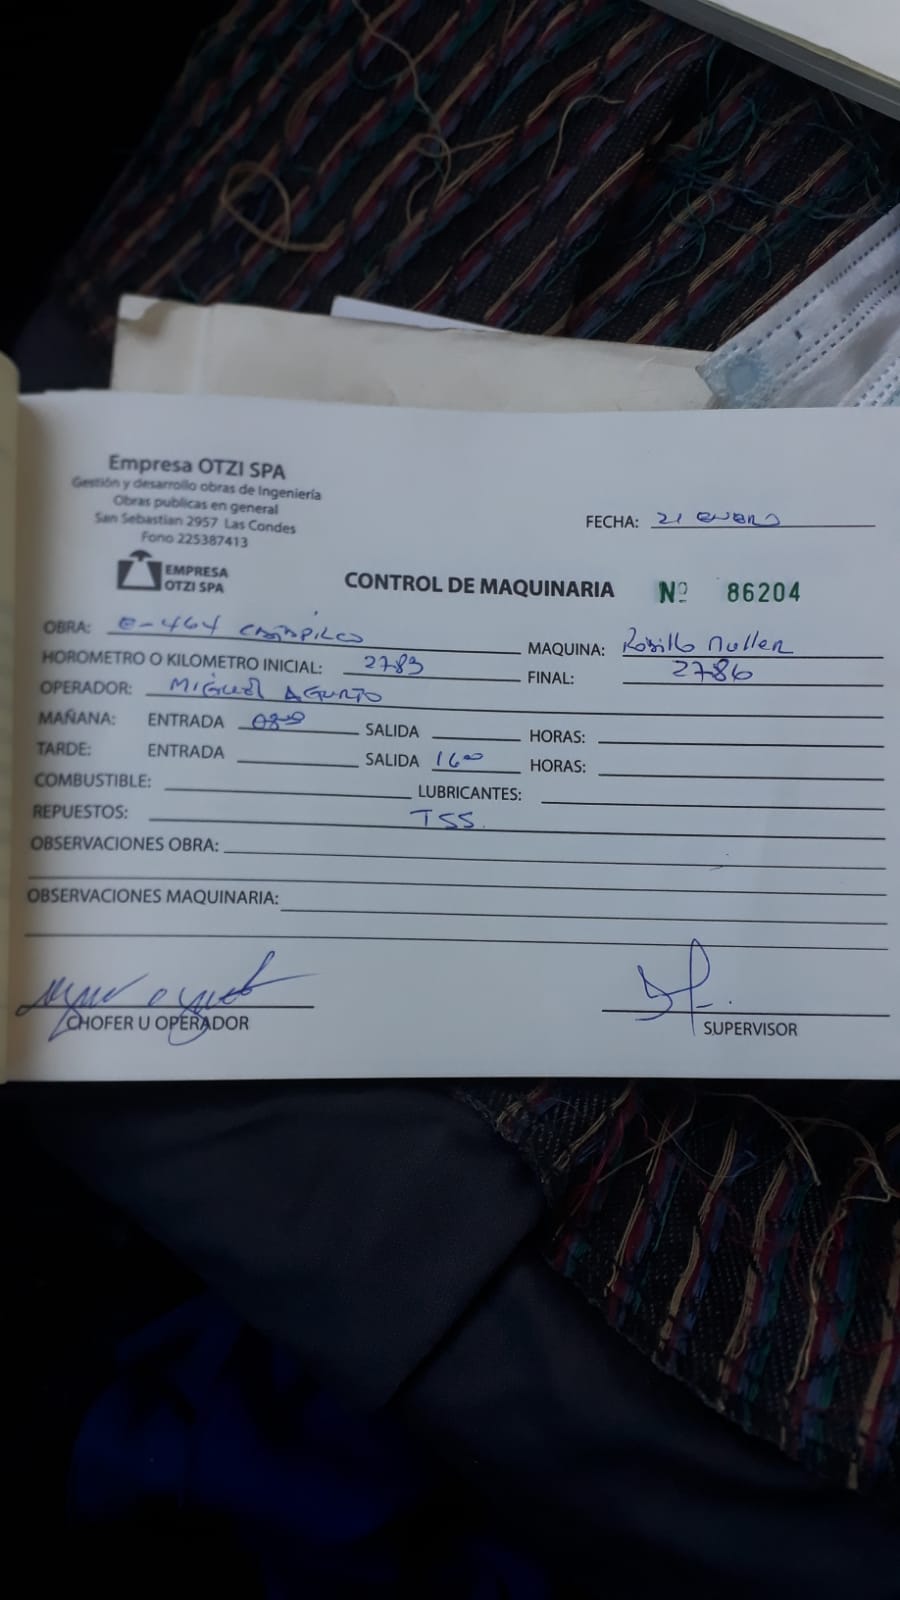 Empresa OTZI SPA
Gestión y desarrollo obras de Ingeniería
Obras publicas en general
San Sebastian 2957 Las Condes
Fono 225387413
EMPRESA
OTZI SPA
FECHA: 21 ENERO
CONTROL DE MAQUINARIA Nº 86204
OBRA: E-464 CASAPILCO MAQUINA: Rodillo Muller
HOROMETRO O KILOMETRO INICIAL: 2783 FINAL: 2786
OPERADOR: MIGUEL AGURTO
MAÑANA: ENTRADA 0800 SALIDA HORAS:
TARDE: ENTRADA SALIDA 1600 HORAS:
COMBUSTIBLE: LUBRICANTES:
REPUESTOS: TSS.
OBSERVACIONES OBRA:
OBSERVACIONES MAQUINARIA:
CHOFER U OPERADOR SUPERVISOR